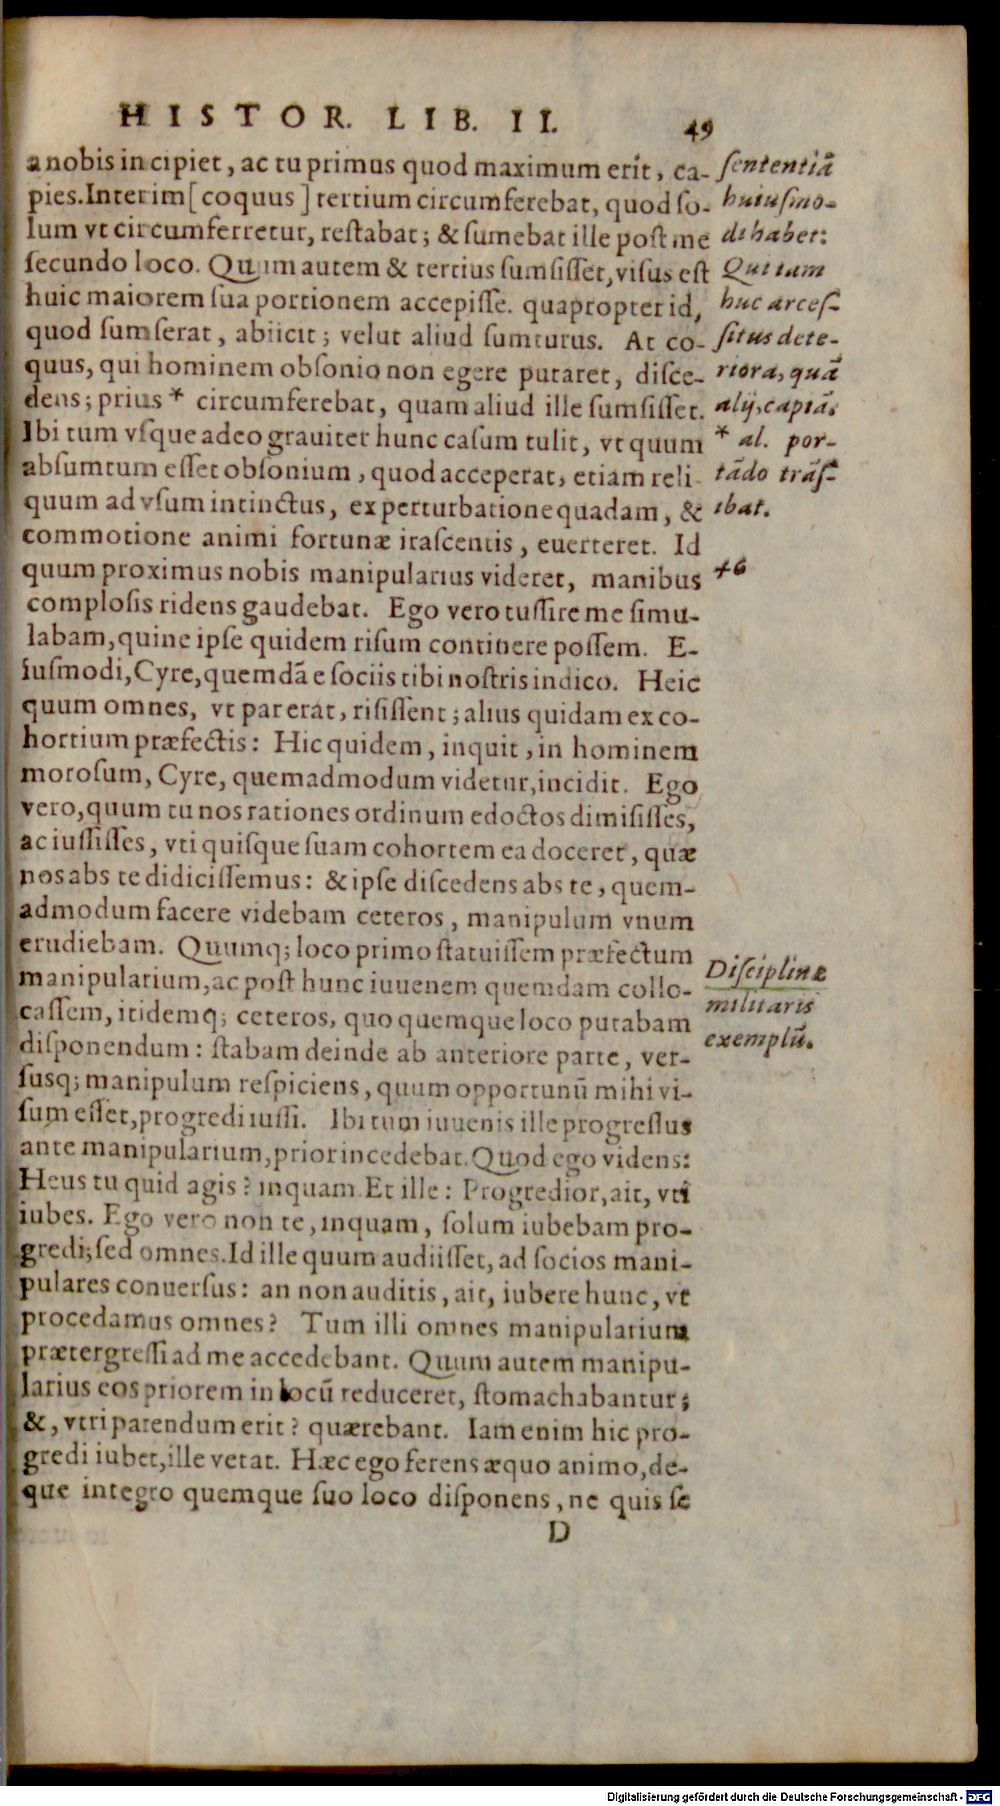 HISTOR. LIB. II. 49
a nobis incipiet, ac tu primus quod maximum erit, ca-
pies. Interim [coquus] tertium circumferebat, quod so-
lum vt circumferretur, restabat; & sumebat ille post me
secundo loco. Quum autem & tertius sumsisset, visus est
huic maiorem sua portionem accepisse. quapropter id,
quod sumserat, abiicit; velut aliud sumturus. At co-
quus, qui hominem obsonio non egere putaret, disce-
dens; prius * circumferebat, quam aliud ille sumsisset.
Ibi tum vsque adeo grauiter hunc casum tulit, vt quum
absumtum esset obsonium, quod acceperat, etiam reli-
quum ad vsum intinctus, ex perturbatione quadam, &
commotione animi fortunæ irascentis, euerteret. Id
quum proximus nobis manipularius videret, manibus
complosis ridens gaudebat. Ego vero tussire me simu-
labam, quine ipse quidem risum continere possem. E-
iusmodi, Cyre, quemdã e sociis tibi nostris indico. Heic
quum omnes, vt par erat, risissent; alius quidam ex co-
hortium præfectis: Hic quidem, inquit, in hominem
morosum, Cyre, quemadmodum videtur, incidit. Ego
vero, quum tu nos rationes ordinum edoctos dimisisses,
ac iussisses, vti quisque suam cohortem ea doceret, quæ
nos abs te didicissemus: & ipse discedens abs te, quem-
admodum facere videbam ceteros, manipulum vnum
erudiebam. Quumq; loco primo statuissem præfectum
manipularium, ac post hunc iuuenem quemdam collo-
cassem, itidemq; ceteros, quo quemque loco putabam
disponendum: stabam deinde ab anteriore parte, ver-
susq; manipulum respiciens, quum opportunũ mihi vi-
sum esset, progredi iussi. Ibi tum iuuenis ille progressus
ante manipularium, prior incedebat. Quod ego videns:
Heus tu quid agis? inquam. Et ille: Progredior, ait, vti
iubes. Ego vero non te, inquam, solum iubebam pro-
gredi; sed omnes. Id ille quum audiisset, ad socios mani-
pulares conuersus: an non auditis, ait, iubere hunc, vt
procedamus omnes? Tum illi omnes manipularium
prætergressi ad me accedebant. Quum autem manipu-
larius eos priorem in locũ reduceret, stomachabantur;
&, vtri parendum erit? quærebant. Iam enim hic pro-
gredi iubet, ille vetat. Hæc ego ferens æquo animo, de-
que integro quemque suo loco disponens, ne quis se
D
sententiã
huiusmo-
di habet:
Qui tam
huc arces-
situs dete-
riora, quã
alij, captã.
* al. por-
tãdo trãs-
ibat.
46
Disciplinæ
militaris
exemplũ.
Digitalisierung gefördert durch die Deutsche Forschungsgemeinschaft - DFG